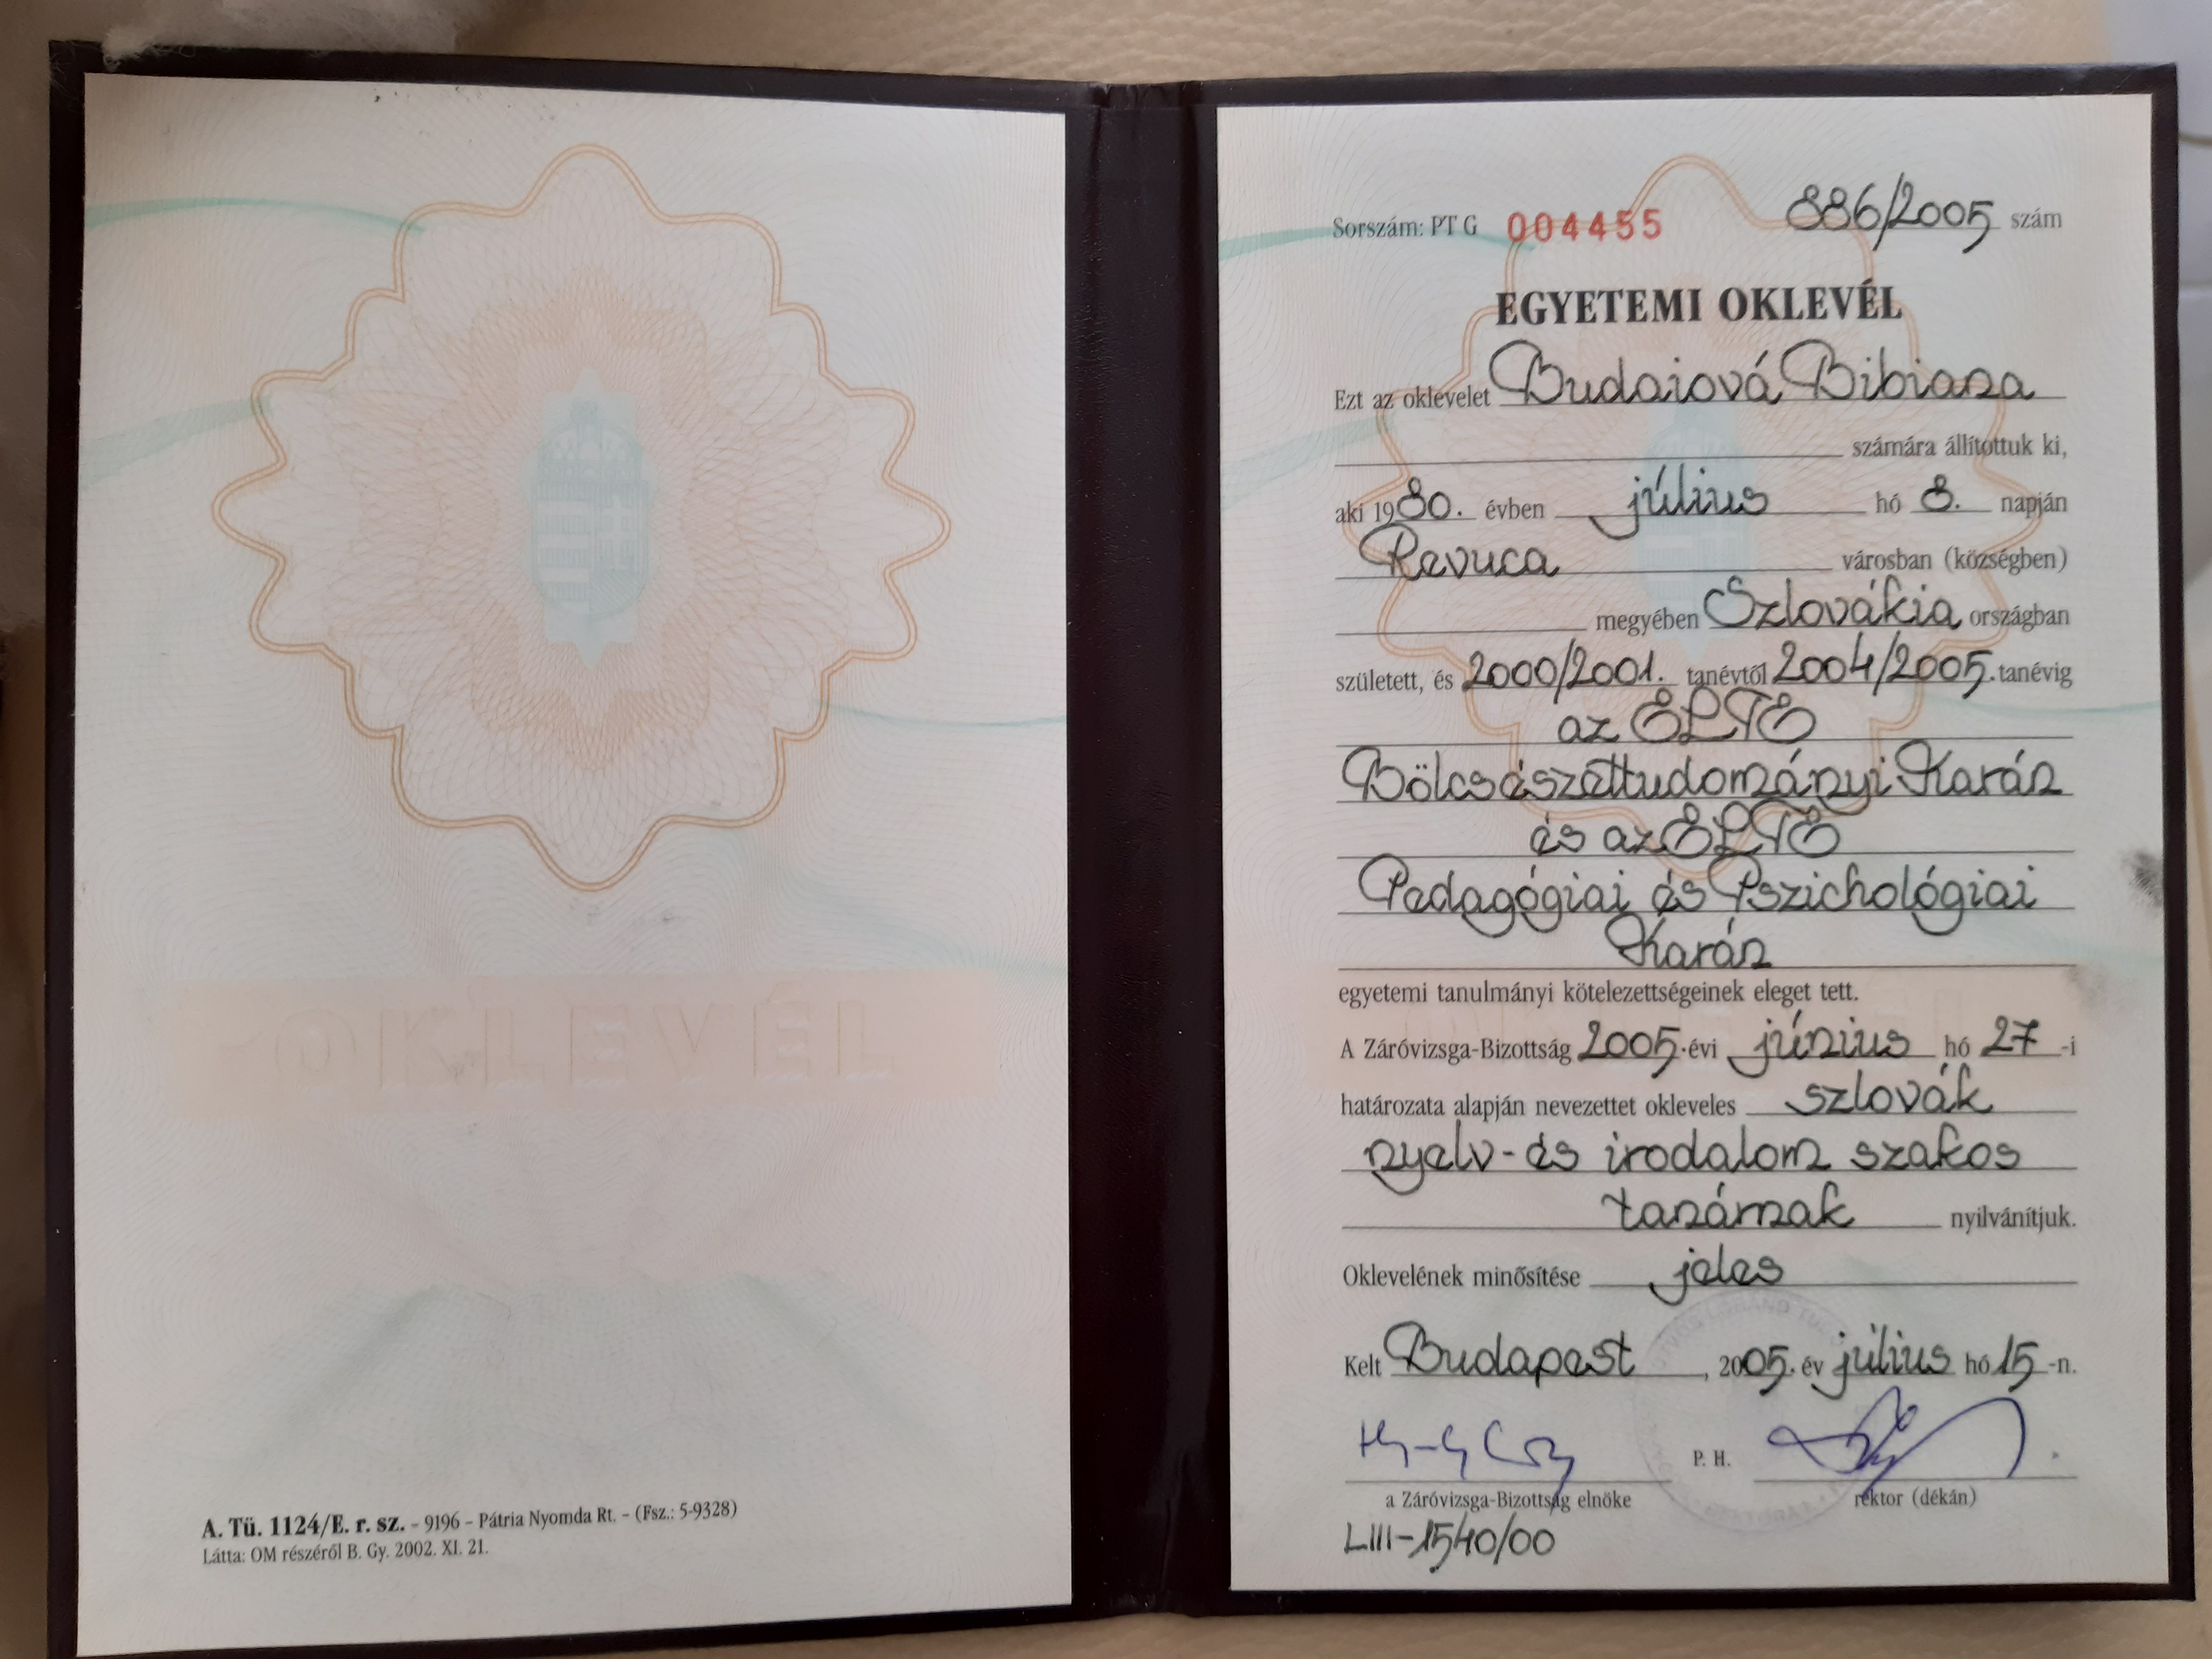 OKLEVÉL
A. Tü. 1124/E. r. sz. - 9196 - Pátria Nyomda Rt. - (Fsz.: 5-9328)
Látta: OM részéről B. Gy. 2002. XI. 21.
Sorszám: PT G 004455 886/2005 szám
EGYETEMI OKLEVÉL
Ezt az oklevelet Budaiová Bibiana
számára állítottuk ki,
aki 1980. évben július hó 8. napján
Revuca városban (községben)
megyében Szlovákia országban
született, és 2000/2001. tanévtől 2004/2005. tanévig
az ELTE
Bölcsészettudományi Karán
és az ELTE
Pedagógiai és Pszichológiai
Karán
egyetemi tanulmányi kötelezettségeinek eleget tett.
A Záróvizsga-Bizottság 2005. évi június hó 27 -i
határozata alapján nevezettet okleveles szlovák
nyelv- és irodalom szakos
tanárnak nyilvánítjuk.
Oklevelének minősítése jeles
Kelt Budapest, 2005. év július hó 15 -n.
P. H.
a Záróvizsga-Bizottság elnöke rektor (dékán)
LIII-1540/00